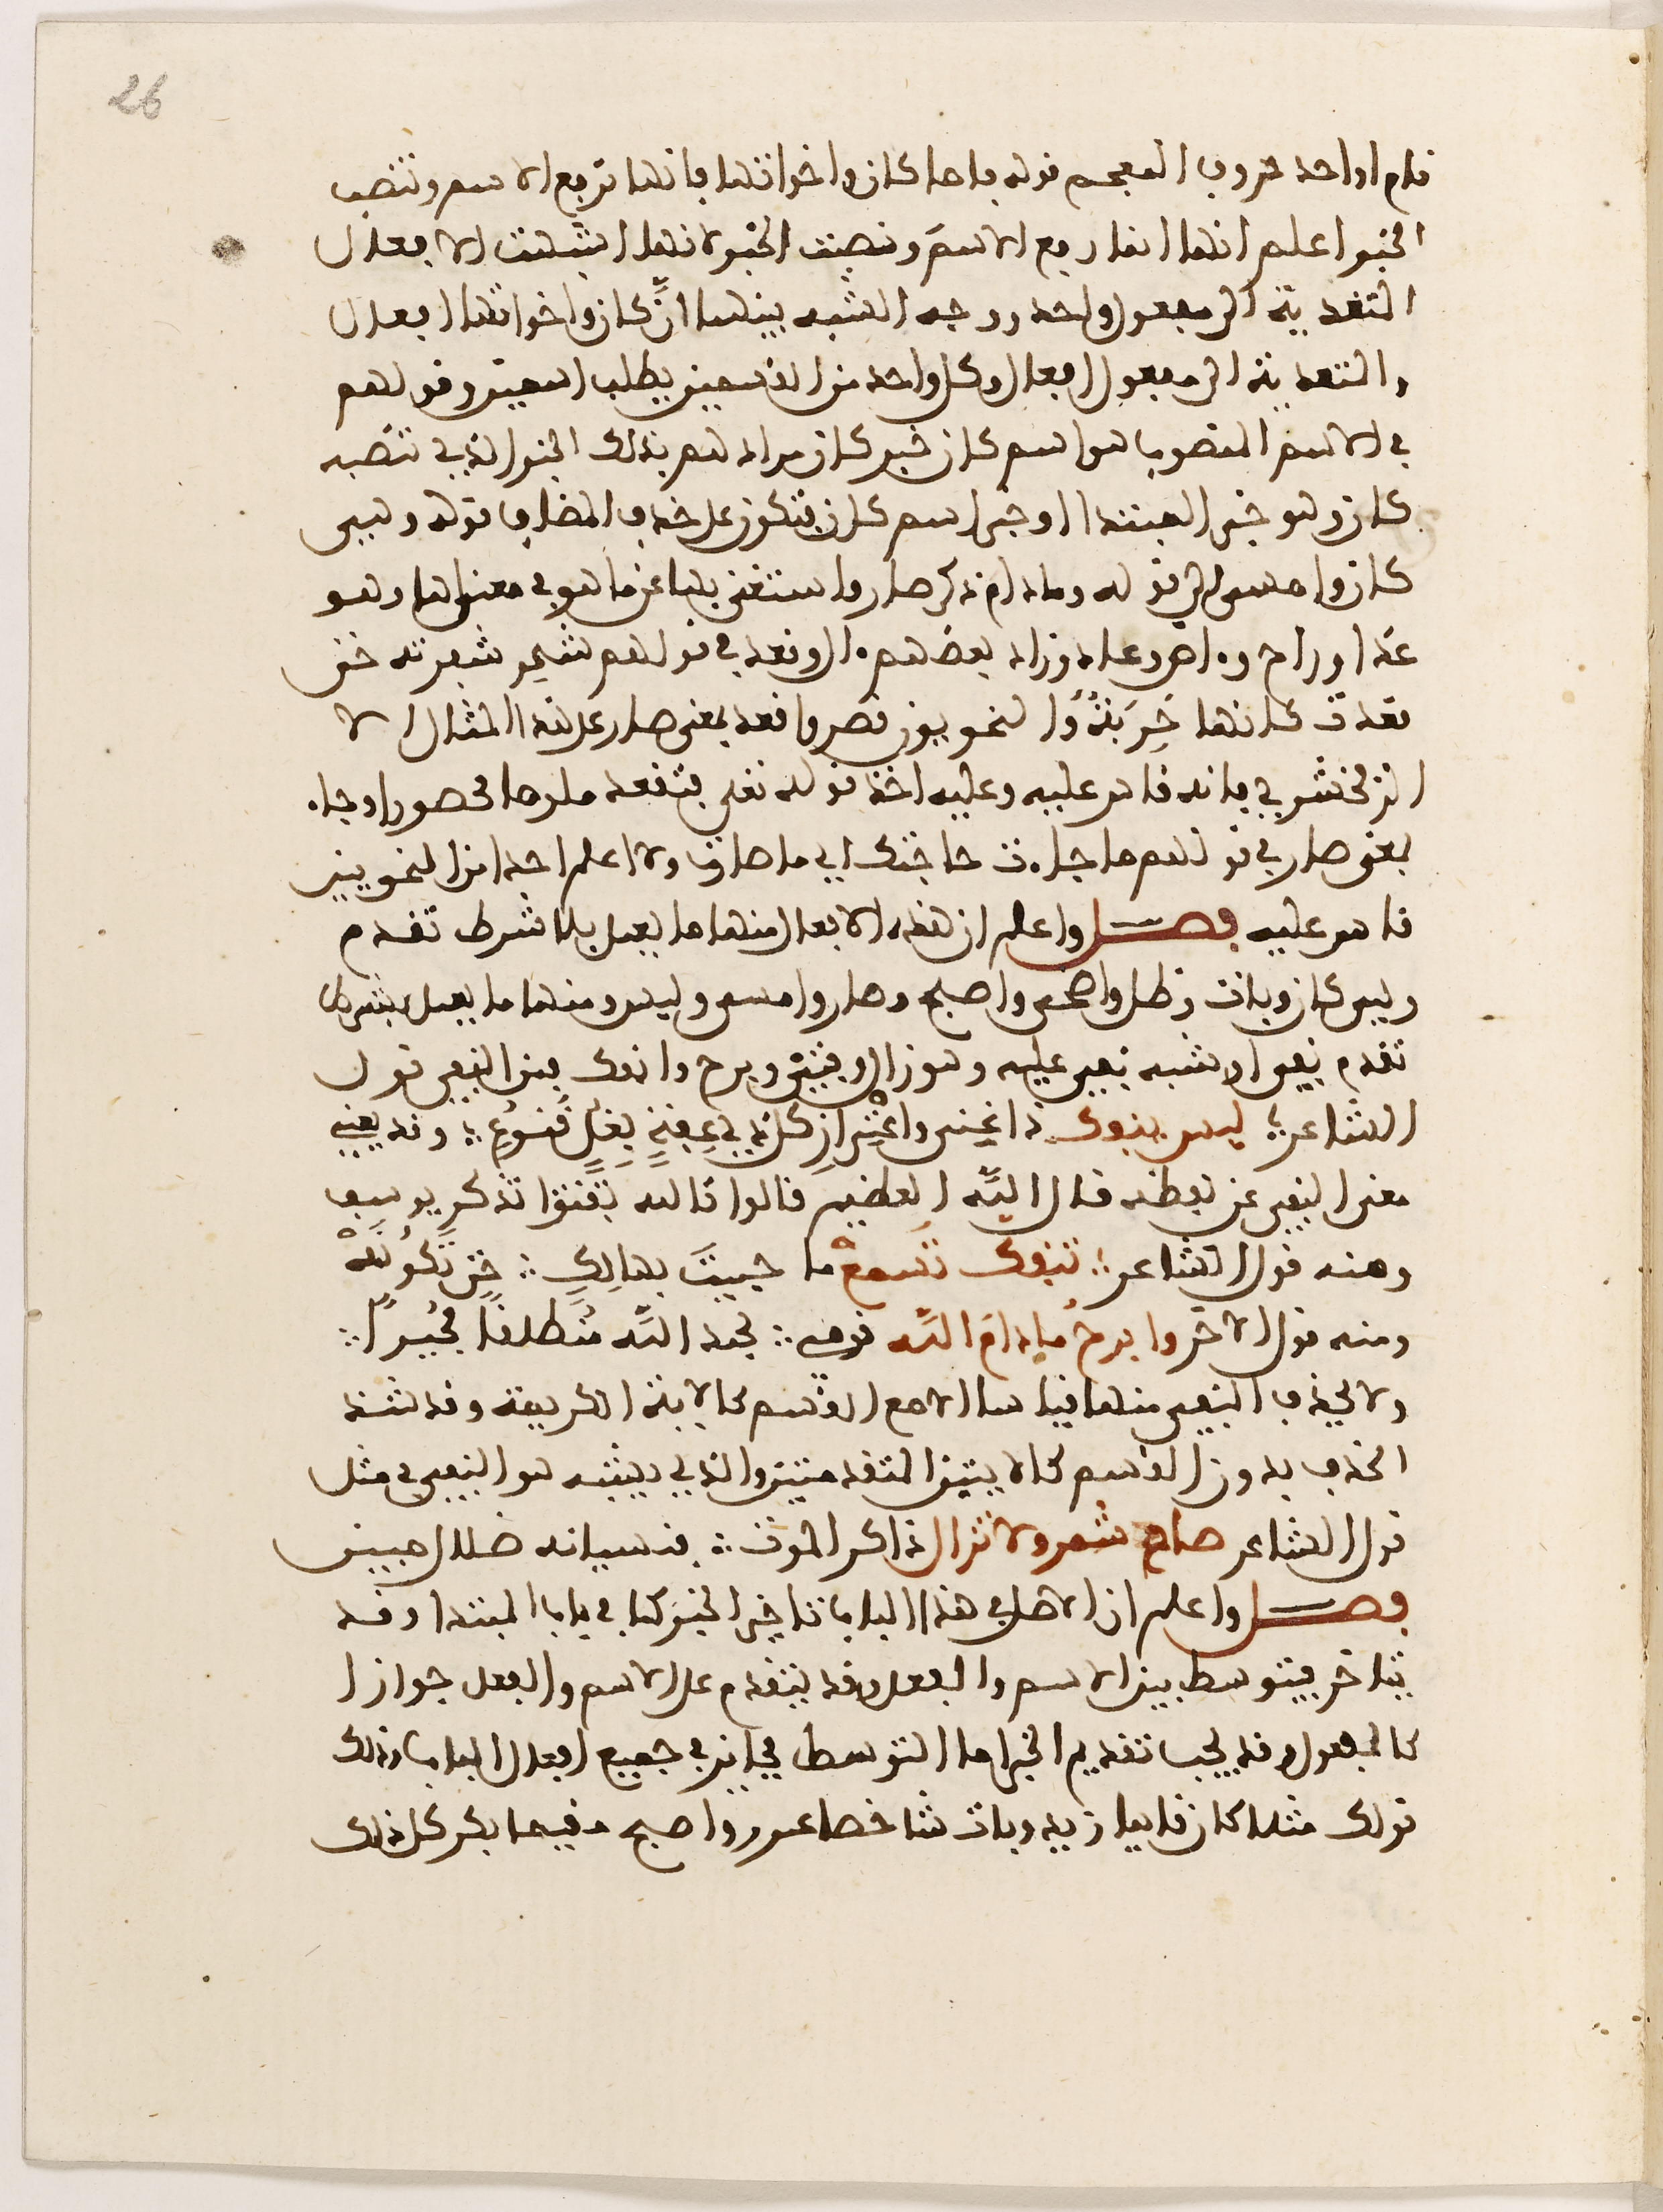 26
قلم او احد حروف المعجم قوله فاما كان واخواتها فانها ترفع الاسم وتنصب
الخبر اعلم انها انما رفع الاسم ونصبت الخبر لانها اشبهت الافعال
المتعدية الى مفعول واحد ووجه الشبه بينهما ان كان واخواتها افعال
والمتعدية الى مفعول افعال وكل واحد من القسمين يطلب اسمين وقولهم
في الاسم المنصوب هو اسم كان خبر كان مرادهم بذلك الخبر الذي تنصبه
كان وهو خبر المبتدا او خبر اسم كان فيكون على حذف المضاف قوله وهي
كان وامسى الى قوله ومادام ذكر صار واستغنى بها عن ما هو في معناها وهو
غدا وراح وءاض وعاد وزاد بعضهم قعد في قولهم شحذ شفرته حتى
قعدت كانها حربة والنحويون قصروا قعد بمعنى صار على هذا المثال الا
الزمخشري فانه قاس عليه وعليه اخذ قوله تعلى فتقعد ملوما محصورا وجاء
بمعنى صار في قولهم ما جاءت حاجتك اي ما صارت ولا اعلم احدا من النحويين
قاس عليه فصل واعلم ان هذه الافعال منها ما يعمل بلا شرط تقدم
وهي كان وبات وظل واضحى واصبح وصار وامسى وليس ومنها ما يعمل بشرط
تقدم نفي او شبه نفي عليه وهو زال وفتئ وبرح وانفك فمن النفي قول
الشاعر؛ ليس ينفك ذا غنى واعتزاز كل ذي عفة يقل قنوع ؛ وقد يغني
معنى النفي عن لفظه قال الله العظيم قالوا تالله تفتؤا تذكر يوسف
ومنه قول الشاعر؛ تنفك تسمع ما حييت بهالك ؛ حتى تكونه
ومنه قول الاخر وابرح ما ادام الله قومي ؛ بحمد الله منتطقا مجيدا ؛
ولا يحذف النفي منها قياسا الا مع القسم كالاية الكريمة وقد شذ
الحذف بدون القسم كالابيتين المتقدمتين والذي يشبه هو النفي في مثل
قول الشاعر صاح شمر ولا تزال ذاكر الموت ؛ فنسيانه ضلال مبين
فصل واعلم ان الاصل في هذا الباب تاخير الخبر كما في باب المبتدا وقد
يتاخر فيتوسط بين الاسم والفعل وقد يتقدم على الاسم والفعل جوازا
كالمفعول وقد يجب تقديم الخبر اما التوسط فجائز في جميع افعال الباب وذلك
قولك مثلا كان قايما زيد وبات شاخصا عمرو واصبح مقيما بكر كل ذلك